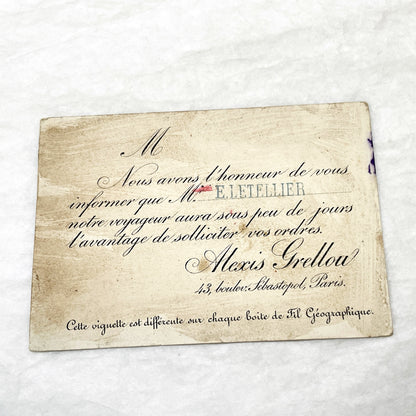 M
Nous avons l'honneur de vous
informer que M. E. LETELLIER
notre voyageur aura sous peu de jours
l'avantage de solliciter vos ordres.
Alexis Grellou
43, boulev. Sébastopol, Paris.
Cette vignette est différente sur chaque boîte de Fil Géographique.